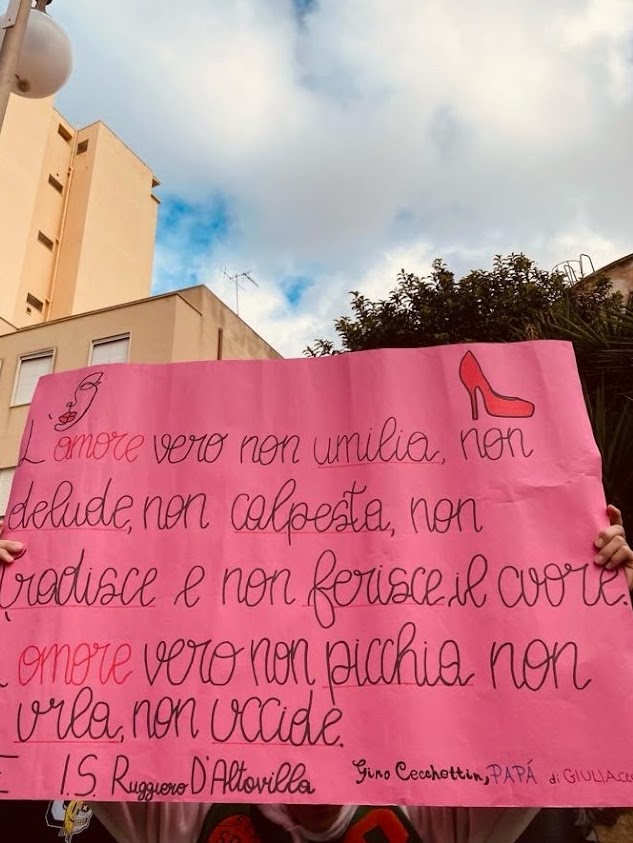 L'amore vero non umilia, non
delude, non calpesta, non
tradisce e non ferisce il cuore.
L'amore vero non picchia non
urla, non uccide.
I.S. Ruggiero D'Altovilla
Gino Cecchettin, PAPÁ di GIULIA